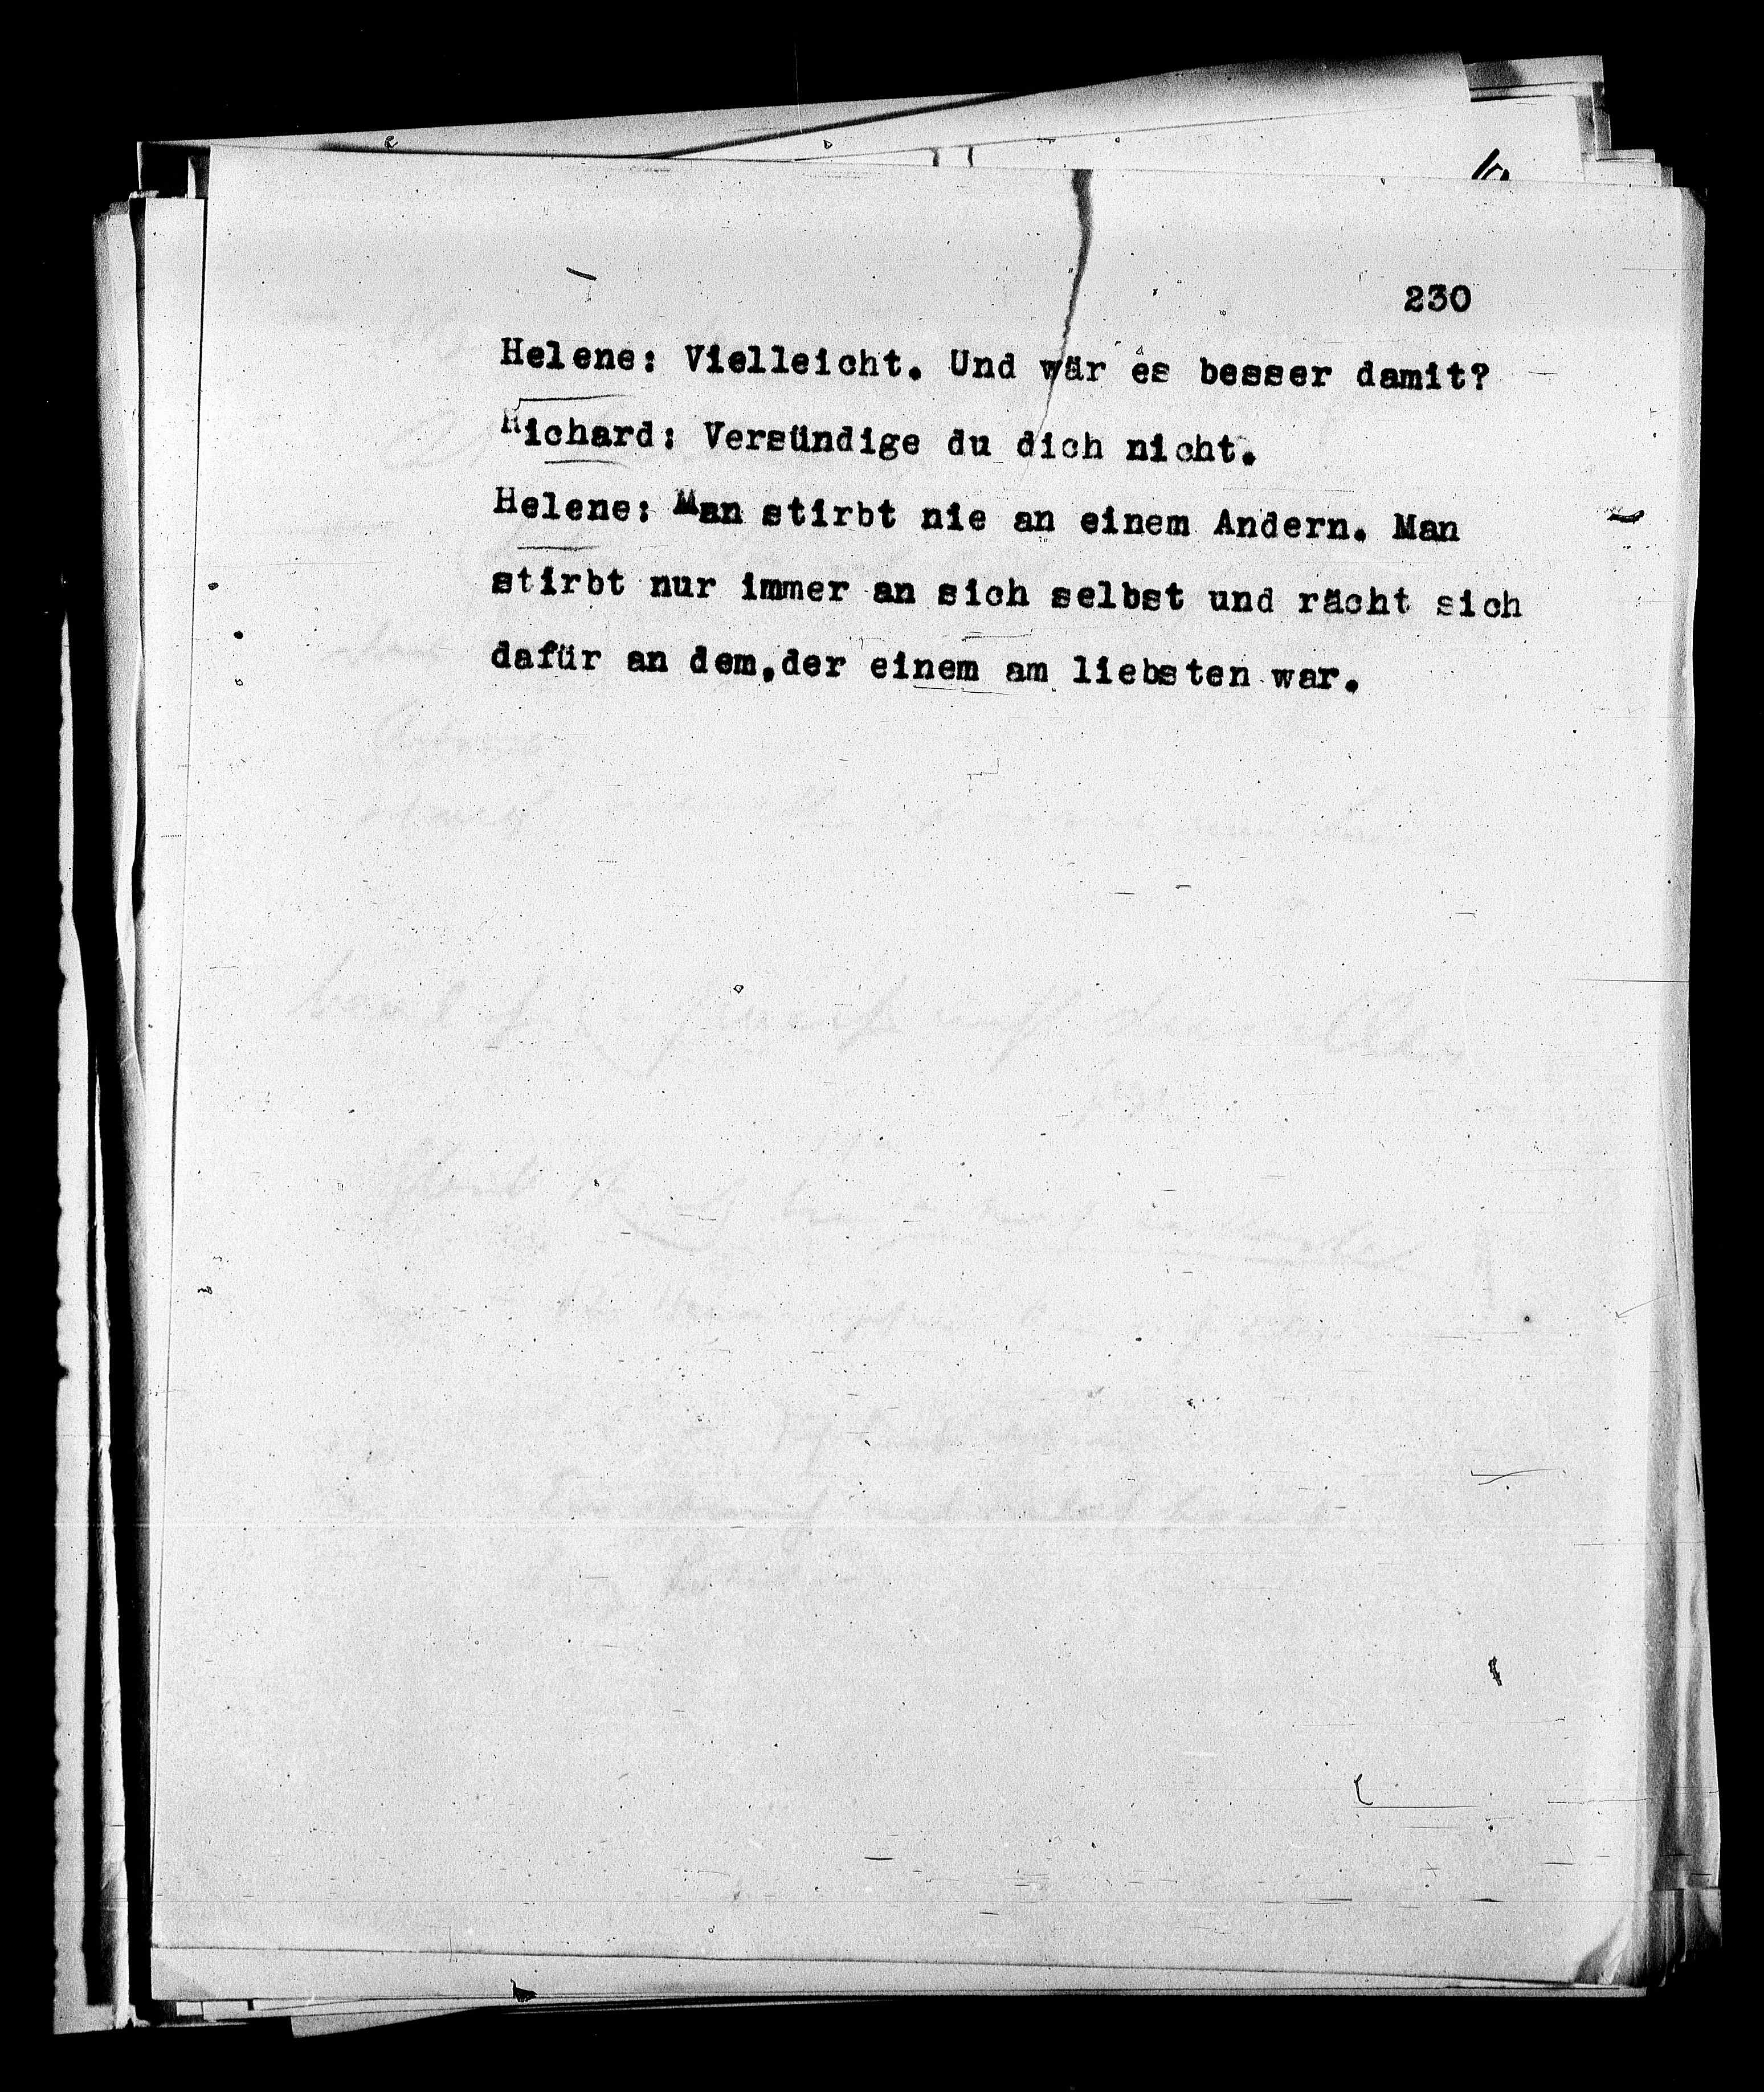 230
Helene: Vielleicht. Und wär es besser damit?
Richard: Versündige du dich nicht.
Helene: Man stirbt nie an einem Andern. Man
stirbt nur immer an sich selbst und rächt sich
dafür an dem,der einem am liebsten war.